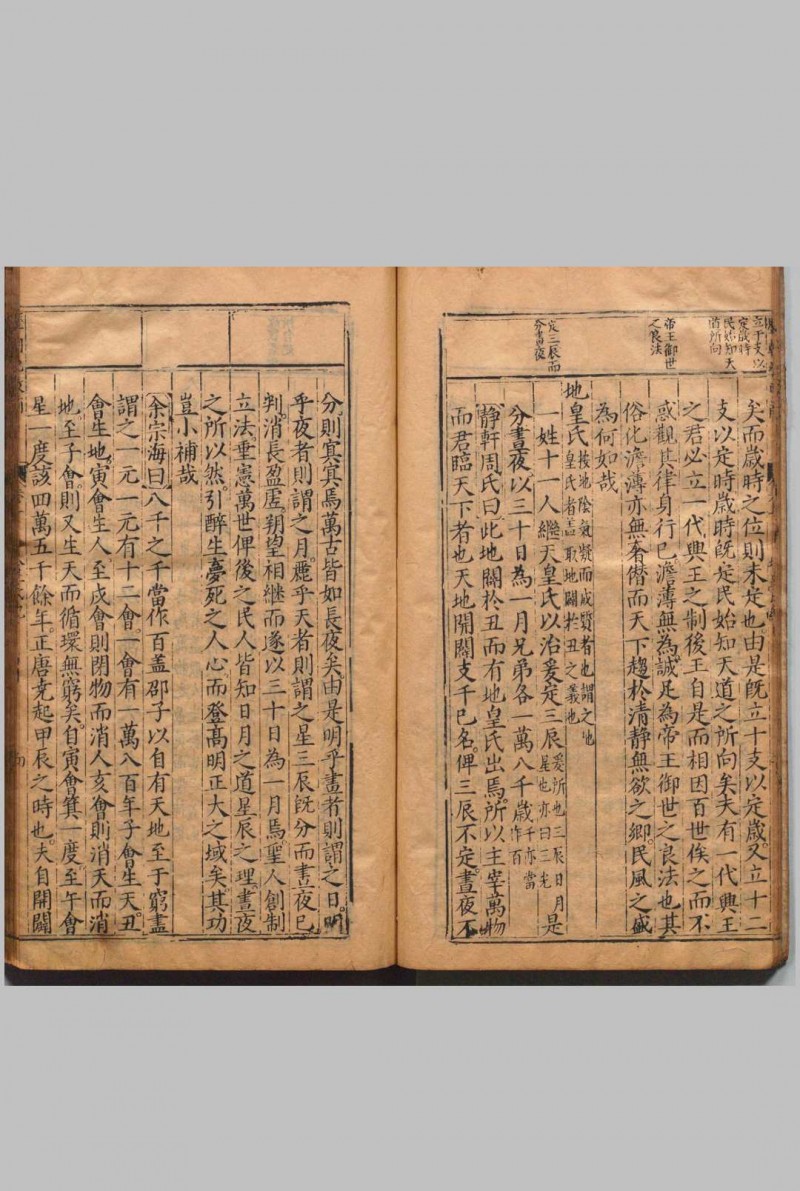 立干支以
定歲時
民始知天
道所向
帝王御世
之良法
定三辰而
分晝夜
矣而歲時之位則未定也由是旣立十支以定歲又立十二
支以定時歲時旣定民始知天道之所向矣夫有一代興王
之君必立一代興王之制後王自是而相因百世俟之而不
惑觀其律身行巳澹薄無為誠足為帝王御世之良法也其
俗化澹薄亦無奢僭而天下趨於清静無欲之鄉民風之盛
為何如哉
地皇氏按地陰氣凝而成質者也謂之地
皇氏者盖取地闢於丑之義也
一姓十一人繼天皇氏以治爰定三辰爰所也三辰日月
星也亦曰三光是
分晝夜以三十日為一月兄弟各一萬八千歲千亦當
作百
静軒周氏曰此地闢於丑而有地皇氏出焉所以主宰萬物
而君臨天下者也天地開闢支干巳名俾三辰不定晝夜不
分則㝠㝠焉萬古皆如長夜矣由是明乎晝者則謂之日明
乎夜者則謂之月麗乎天者則謂之星三辰旣分而晝夜巳
判消長盈虛朔望相継而遂以三十日為一月焉聖人創制
立法垂憲萬世俾後之民人皆知日月之道星辰之理晝夜
之所以然引醉生夢死之人心而登高明正大之域矣其功
豈小補哉
余宗海曰八千之千當作百盖邵子以自有天地至于窮盡
謂之一元一元有十二會一會有一萬八百年子會生天丑
會生地寅會生人至戌會則閉物而消人亥會則消天而消
地至子會則又生天而循環無窮矣自寅會箕一度至午會
星一度該四萬五千餘年正唐堯起甲辰之時也夫自開闢